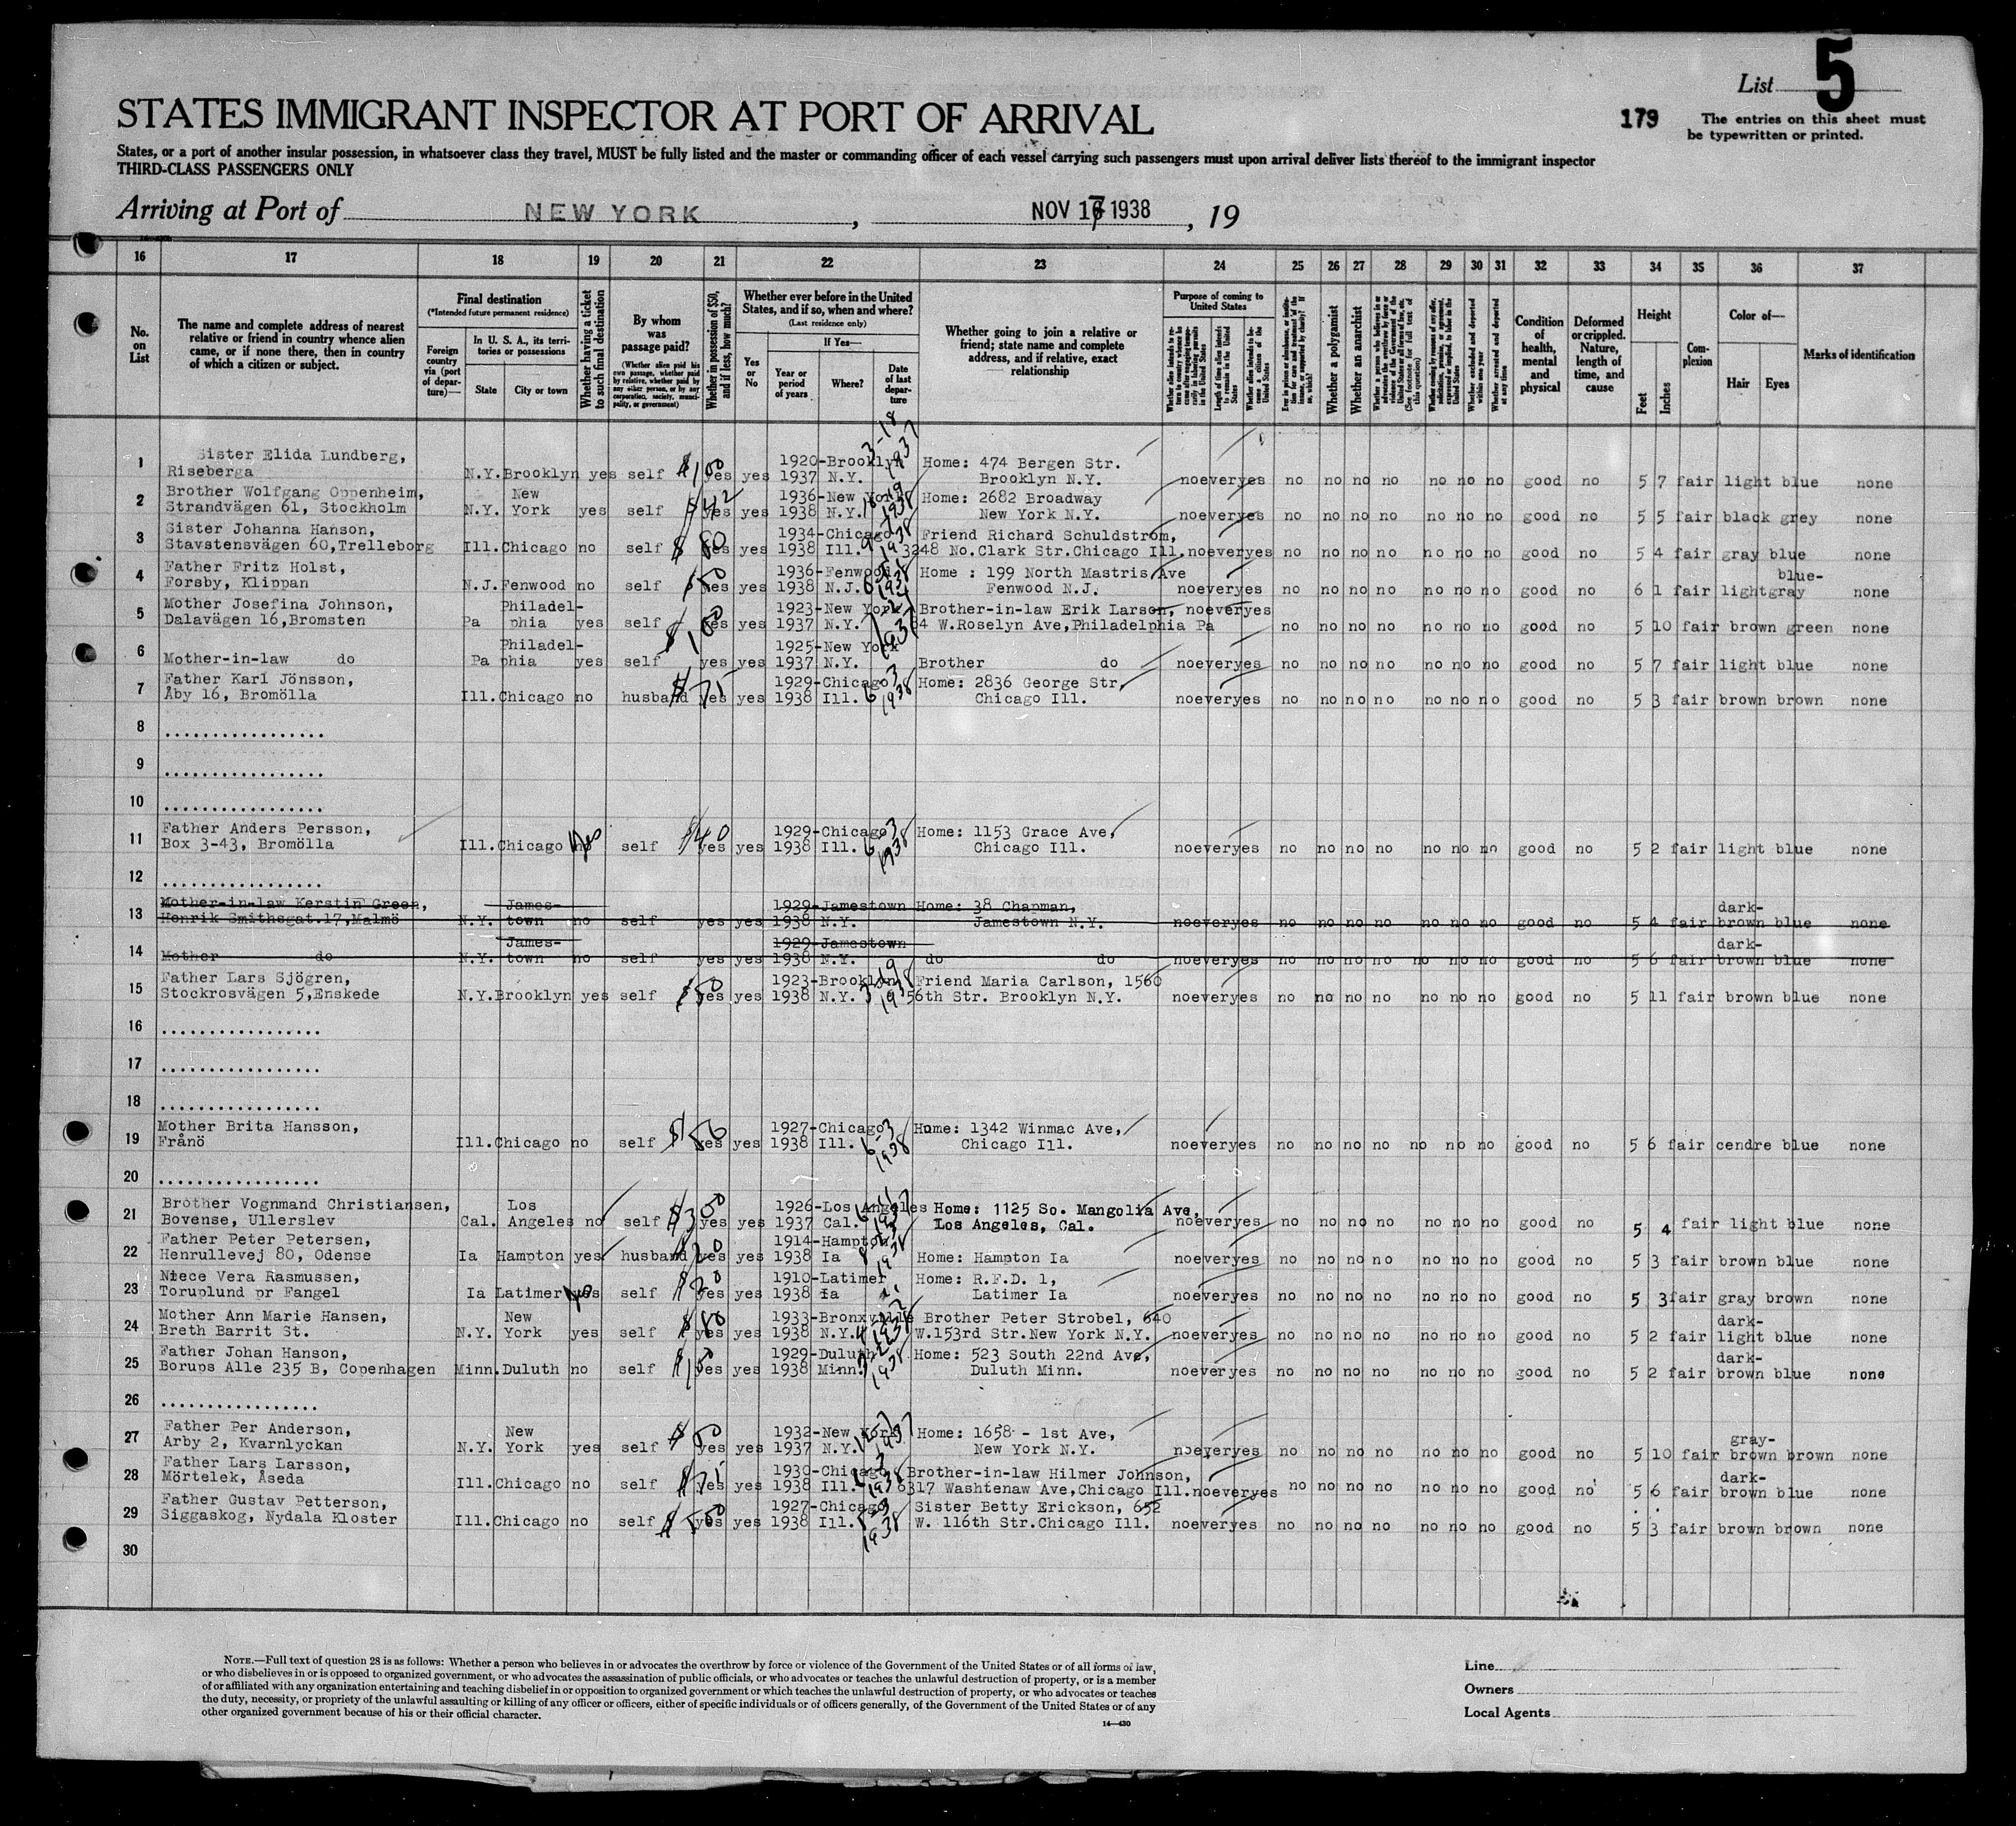 List 5
179 The entries on this sheet must
be typewritten or printed.
STATES IMMIGRANT INSPECTOR AT PORT OF ARRIVAL
States, or a port of another insular possession, in whatsoever class they travel, MUST be fully listed and the master or commanding officer of each vessel carrying such passengers must upon arrival deliver lists thereof to the immigrant inspector
THIRD-CLASS PASSENGERS ONLY
Arriving at Port of NEW YORK, NOV 17 1938, 19
16 17 18 19 20 21 22 23 24 25 26 27 28 29 30 31 32 33 34 35 36 37
No. on List
The name and complete address of nearest relative or friend in country whence alien came, or if none there, then in country of which a citizen or subject.
Final destination
(*Intended future permanent residence)
Foreign country via (port of departure)—
In U. S. A., its territories or possessions
State City or town
Whether having a ticket to such final destination
By whom was passage paid?
(Whether alien paid his own passage, whether paid by relative, whether paid by any other person, or by any corporation, society, municipality, or government)
Whether in possession of $50, and if less, how much?
Whether ever before in the United States, and if so, when and where?
(Last residence only)
Yes or No
If Yes—
Year or period of years
Where?
Date of last departure
Whether going to join a relative or friend; state name and complete address, and if relative, exact relationship
Purpose of coming to United States
Length of time alien intends to remain in the United States
Whether alien intends to become a citizen of the United States
Whether a polygamist
Whether an anarchist
(See footnote for full text of this question)
Whether excluded and deported within one year
Whether arrested and deported at any time
Condition of health, mental and physical
Deformed or crippled. Nature, length of time, and cause
Height
Feet Inches
Complexion
Color of—
Hair Eyes
Marks of identification
1 Sister Elida Lundberg, 1920-Brooklyn Home: 474 Bergen Str.
Riseberga N.Y. Brooklyn yes self $100 yes yes 1937 N.Y. 3-18 1937 Brooklyn N.Y. no ever yes no no no no no no no good no 5 7 fair light blue none
2 Brother Wolfgang Oppenheim, New 1936-New York Home: 2682 Broadway
Strandvägen 61, Stockholm N.Y. York yes self $42 yes yes 1938 N.Y. 1938 New York N.Y. no ever yes no no no no no no no good no 5 5 fair black grey none
3 Sister Johanna Hanson, 1934-Chicago Friend Richard Schuldstrom,
Stavstensvägen 60,Trelleborg Ill. Chicago no self $80 yes yes 1938 Ill. 3248 No.Clark Str.Chicago Ill. no ever yes no no no no no no no good no 5 4 fair gray blue none
4 Father Fritz Holst, 1936-Fenwood Home : 199 North Mastris Ave blue-
Forsby, Klippan N.J. Fenwood no self $50 yes yes 1938 N.J. 1938 Fenwood N.J. no ever yes no no no no no no no good no 6 1 fair light gray none
5 Mother Josefina Johnson, Philadel- 1923-New York Brother-in-law Erik Larson, no ever yes
Dalavägen 16,Bromsten Pa phia yes self $100 yes yes 1937 N.Y. 1937 4 W.Roselyn Ave,Philadelphia Pa no no no no no no no good no 5 10 fair brown green none
6 Philadel- 1925-New York
Mother-in-law do Pa phia yes self yes yes 1937 N.Y. Brother do no ever yes no no no no no no no good no 5 7 fair light blue none
7 Father Karl Jönsson, 1929-Chicago Home: 2836 George Str,
Åby 16, Bromölla Ill. Chicago no husband $75 yes yes 1938 Ill. 6-3 1938 Chicago Ill. no ever yes no no no no no no no good no 5 3 fair brown brown none
8 .................
9 .................
10 .................
11 Father Anders Persson, 1929-Chicago Home: 1153 Grace Ave,
Box 3-43, Bromölla Ill. Chicago no Yes self $40 yes yes 1938 Ill. 6-3 1938 Chicago Ill. no ever yes no no no no no no no good no 5 2 fair light blue none
12 .................
13 Mother-in-law Kerstin Green, James- 1929-Jamestown Home: 38 Chapman, dark-
Henrik Smithsgat.17,Malmö N.Y. town no self yes yes 1938 N.Y. Jamestown N.Y. no ever yes no no no no no no no good no 5 4 fair brown blue none
14 James- 1929-Jamestown dark-
Mother do N.Y. town no self yes yes 1938 N.Y. do do no ever yes no no no no no no no good no 5 6 fair brown blue none
15 Father Lars Sjögren, 1923-Brooklyn Friend Maria Carlson, 1560
Stockrosvägen 5,Enskede N.Y. Brooklyn yes self $50 yes yes 1938 N.Y. 56th Str. Brooklyn N.Y. no ever yes no no no no no no no good no 5 11 fair brown blue none
16 .................
17 .................
18 .................
19 Mother Brita Hansson, 1927-Chicago Home: 1342 Winmac Ave,
Frånö Ill. Chicago no self $50 yes yes 1938 Ill. 6-3 1938 Chicago Ill. no ever yes no no no no no no no good no 5 6 fair cendre blue none
20 .................
21 Brother Vognmand Christiansen, Los 1926-Los Angeles Home: 1125 So. Mangolia Ave,
Bovense, Ullerslev Cal. Angeles no self $300 yes yes 1937 Cal. Los Angeles, Cal. no ever yes no no no no no no no good no 5 4 fair light blue none
22 Father Peter Petersen, 1914-Hampton
Henrullevej 80, Odense Ia Hampton yes husband $20 yes yes 1938 Ia 1938 Home: Hampton Ia no ever yes no no no no no no no good no 5 3 fair brown blue none
23 Niece Vera Rasmussen, 1910-Latimer Home: R.F.D. 1,
Toruplund pr Fangel Ia Latimer yes No self $20 yes yes 1938 Ia Latimer Ia no ever yes no no no no no no no good no 5 3 fair gray brown none
24 Mother Ann Marie Hansen, New 1933-Bronxville Brother Peter Strobel, 640 dark-
Breth Barrit St. N.Y. York yes self $80 yes yes 1938 N.Y. W.153rd Str.New York N.Y. no ever yes no no no no no no no good no 5 2 fair light blue none
25 Father Johan Hanson, 1929-Duluth Home: 523 South 22nd Ave, dark-
Borups Alle 235 B, Copenhagen Minn. Duluth no self $100 yes yes 1938 Minn. 1938 Duluth Minn. no ever yes no no no no no no no good no 5 2 fair brown blue none
26 .................
27 Father Per Anderson, New 1932-New York Home: 1658 - 1st Ave, gray-
Arby 2, Kvarnlyckan N.Y. York yes self $50 yes yes 1937 N.Y. 1937 New York N.Y. no ever yes no no no no no no no good no 5 10 fair brown brown none
28 Father Lars Larsson, 1930-Chicago Brother-in-law Hilmer Johnson, dark-
Mörtelek, Åseda Ill. Chicago no self $75 yes yes 1938 Ill. 6317 Washtenaw Ave,Chicago Ill. no ever yes no no no no no no no good no 5 6 fair brown blue none
29 Father Gustav Petterson, 1927-Chicago Sister Betty Erickson, 652
Siggaskog, Nydala Kloster Ill. Chicago no self yes yes 1938 Ill. 1938 W. 116th Str.Chicago Ill. no ever yes no no no no no no no good no 5 3 fair brown brown none
30
NOTE.—Full text of question 28 is as follows: Whether a person who believes in or advocates the overthrow by force or violence of the Government of the United States or of all forms of law,
or who disbelieves in or is opposed to organized government, or who advocates the assassination of public officials, or who advocates or teaches the unlawful destruction of property, or is a member
of or affiliated with any organization entertaining and teaching disbelief in or opposition to organized government or which teaches the unlawful destruction of property, or who advocates or teaches
the duty, necessity, or propriety of the unlawful assaulting or killing of any officer or officers, either of specific individuals or of officers generally, of the Government of the United States or of any
other organized government because of his or their official character.
14—430
Line
Owners
Local Agents